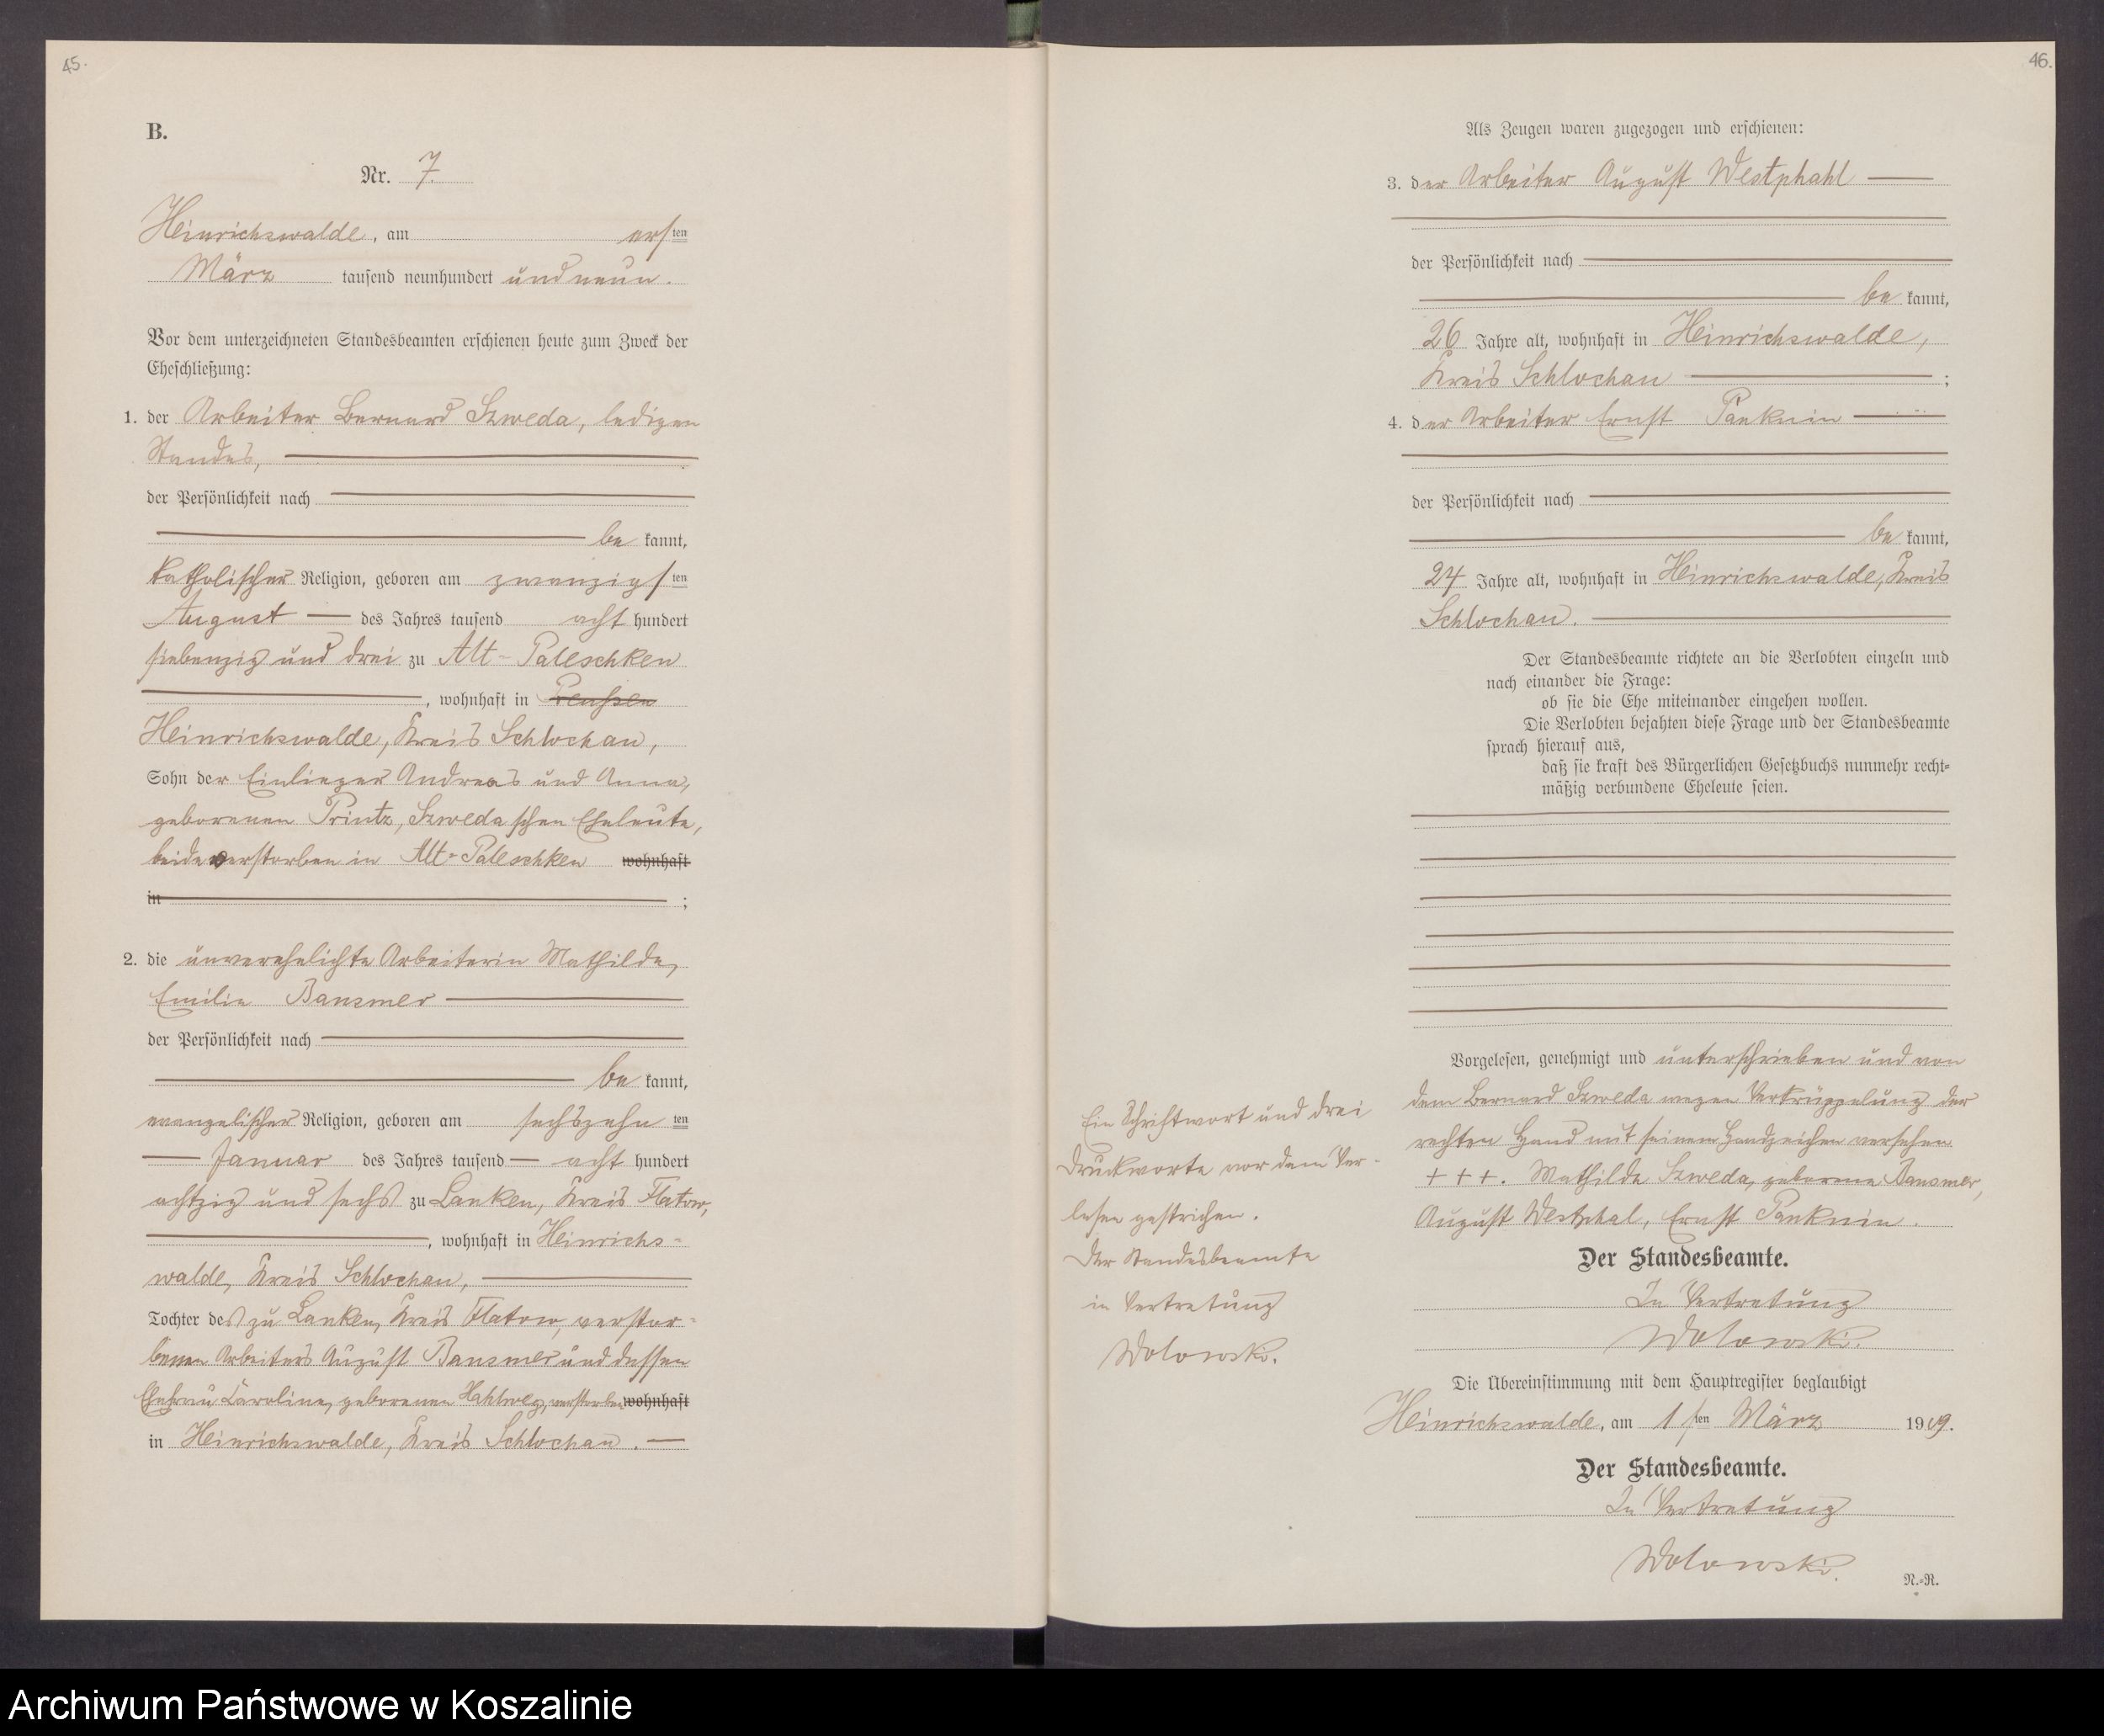 45.
B.
Nr. 7.
Heinrichswalde, am ersten
März tausend neunhundert und neun.
Vor dem unterzeichneten Standesbeamten erschienen heute zum Zweck der
Eheschließung:
1. der Arbeiter Bernard Szweda, ledigen
Standes,
der Persönlichkeit nach
be kannt,
katholischer Religion, geboren am zwanzigsten
August des Jahres tausend acht hundert
siebenzig und drei zu Alt-Paleschken
, wohnhaft in Preußen
Heinrichswalde, Kreis Schlochau,
Sohn der Einlieger Andreas und Anna,
geborenen Printz, Szwedaschen Eheleute,
beide verstorben in Alt-Paleschken wohnhaft
in ;
2. die unverehelichte Arbeiterin Mathilde,
Emilie Bansmer
der Persönlichkeit nach
be kannt,
evangelischer Religion, geboren am sechszehn ten
Januar des Jahres tausend acht hundert
achtzig und sechs zu Lanken, Kreis Flatow,
, wohnhaft in Heinrichs-
walde, Kreis Schlochau,
Tochter des zu Lanken, Kreis Flatow, verstor-
benen Arbeiters August Bansmer und dessen
Ehefrau Karoline, geborenen Hahlweg, verstorben wohnhaft
in Heinrichswalde, Kreis Schlochau.
46.
Als Zeugen waren zugezogen und erschienen:
3. der Arbeiter August Westphahl
der Persönlichkeit nach
be kannt,
26 Jahre alt, wohnhaft in Heinrichswalde,
Kreis Schlochau ;
4. der Arbeiter Ernst Panknin
der Persönlichkeit nach
be kannt,
24 Jahre alt, wohnhaft in Heinrichswalde, Kreis
Schlochau.
Der Standesbeamte richtete an die Verlobten einzeln und
nach einander die Frage:
ob sie die Ehe miteinander eingehen wollen.
Die Verlobten bejahten diese Frage und der Standesbeamte
sprach hierauf aus,
daß sie kraft des Bürgerlichen Gesetzbuchs nunmehr recht-
mäßig verbundene Eheleute seien.
Vorgelesen, genehmigt und unterschrieben und von
dem Bernard Szweda wegen Verkrüppelung der
rechten Hand mit seinem Handzeichen versehen
+++. Mathilde Szweda, geborene Bansmer,
August Westphal, Ernst Panknin.
Der Standesbeamte.
In Vertretung
Wolowski.
Ein Schriftwort und drei
Druckworte vor dem Ver-
lesen gestrichen.
Der Standesbeamte
in Vertretung
Wolowski.
Die Übereinstimmung mit dem Hauptregister beglaubigt
Heinrichswalde, am 1 sten März 1909.
Der Standesbeamte.
In Vertretung
Wolowski.
N.-R.
Archiwum Państwowe w Koszalinie